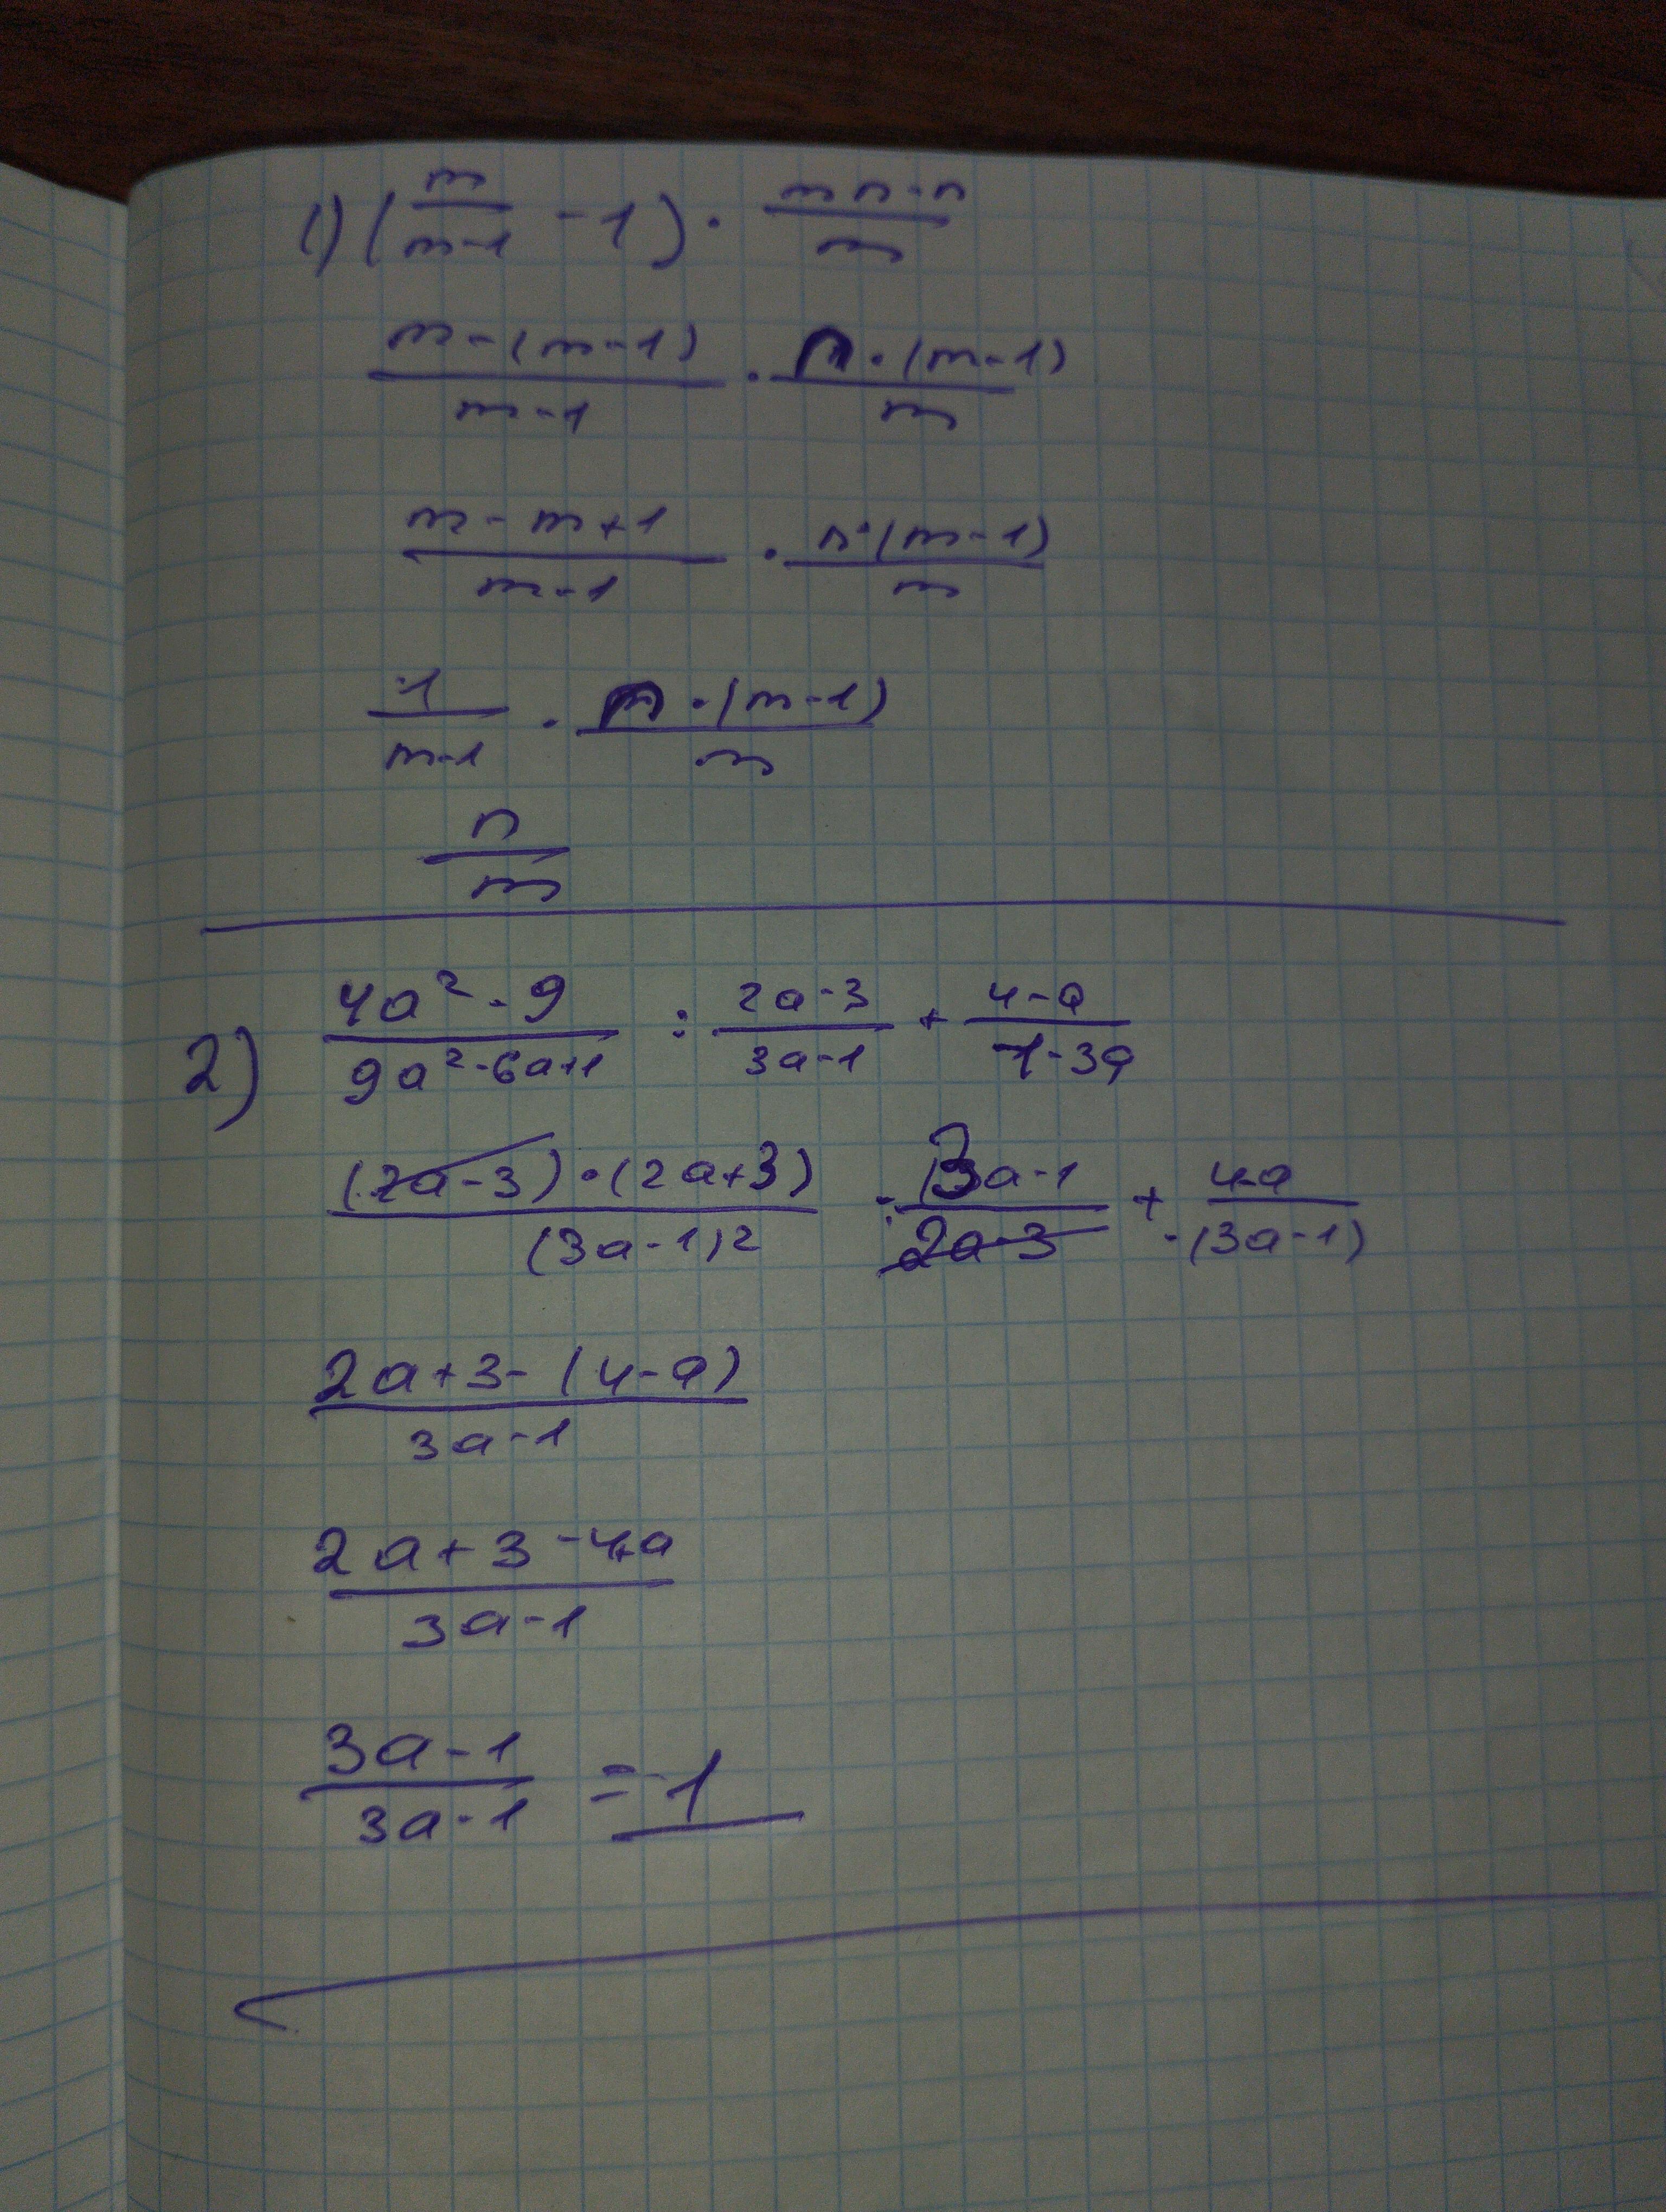 1) (m/(m-1) - 1) · (mn-n)/m
(m-(m-1))/(m-1) · (n·(m-1))/m
(m-m+1)/(m-1) · (n·(m-1))/m
1/(m-1) · (n·(m-1))/m
n/m
2) (4a²-9)/(9a²-6a+1) : (2a-3)/(3a-1) + (4-a)/(1-3a)
((2a-3)·(2a+3))/(3a-1)² : (3a-1)/(2a-3) + (4-a)/(-(3a-1))
(2a+3-(4-a))/(3a-1)
(2a+3-4+a)/(3a-1)
(3a-1)/(3a-1) = 1